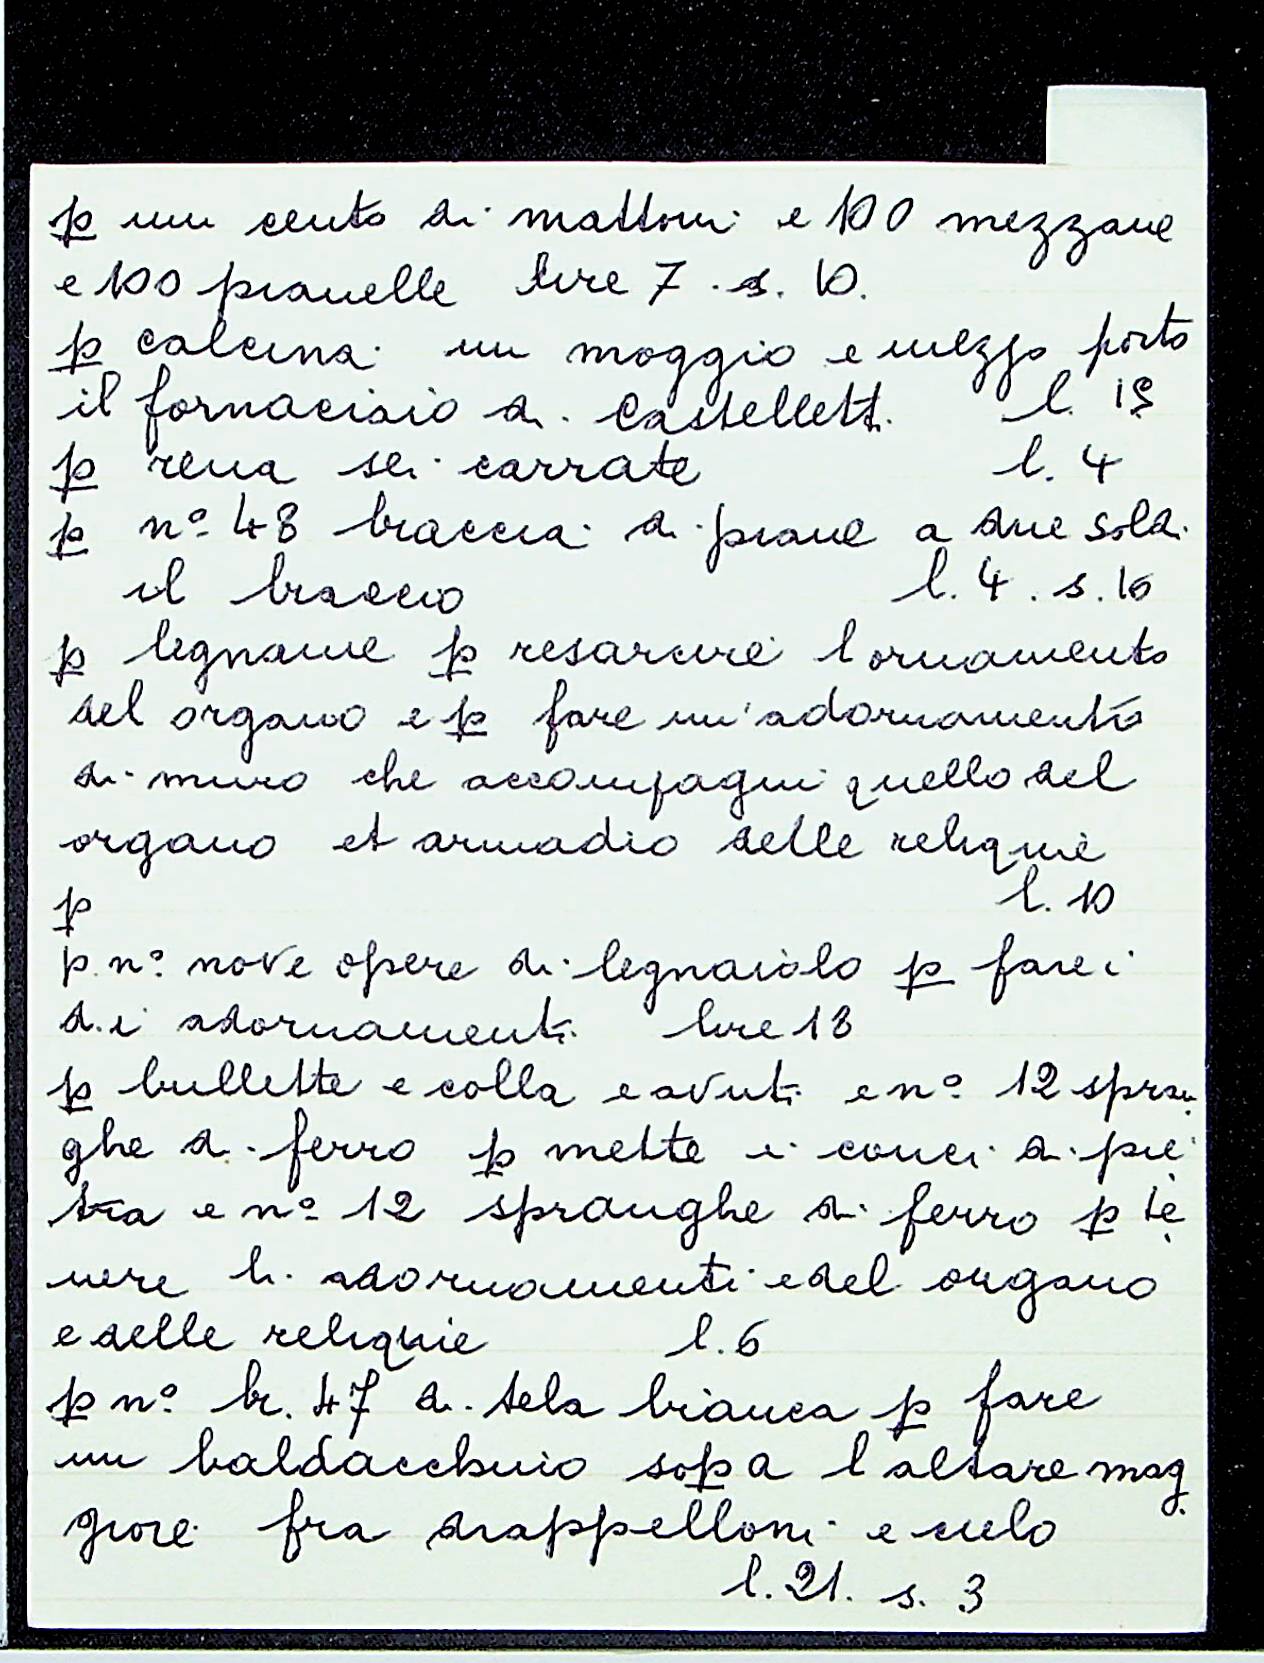 p un cento di mattoni e 100 mezzane
e 100 pianelle lire 7 . s. 10.
p calcina un moggio e mezzo porto
il fornaciaio di Castellett. l.
p rena sei carrate l. 4
p n° 48 braccia di piane a due soldi
il braccio l. 4 . s. 16
p legname p resarcire l ornamento
del organo e p fare un'adornamento
di muro che accompagni quello del
organo et armadio delle reliquie
p l. 10
p n° nove opere di legnaiolo p fare i
d.i adornamenti lire 18
p bullette e colla e avuti e n° 12 spran
ghe di ferro p mette i conci di pie
tra e n° 12 spranghe di ferro p te
nere li adornamenti e del organo
e delle reliquie l. 6
p n° br. 47 di tela bianca p fare
un baldacchino sopa l altare mag
giore fra drappelloni e cielo
l. 21. s. 3